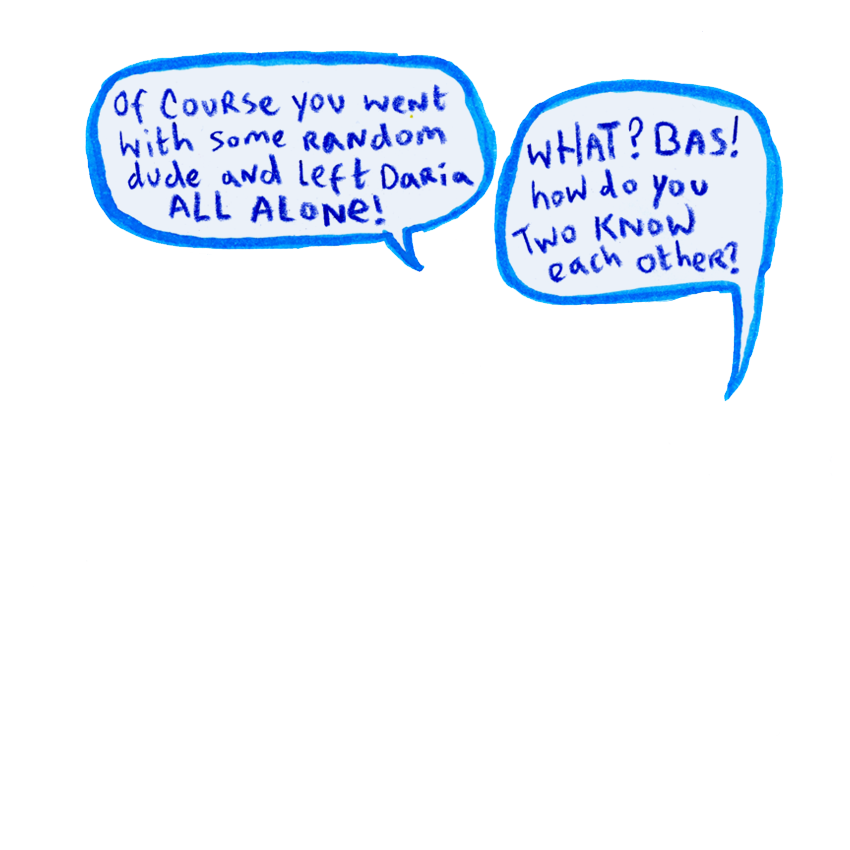 Of Course you went
with some RANdom
dude and left Daria
ALL ALONe!
WHAT? BAS!
how do you
Two KNOW
each other?